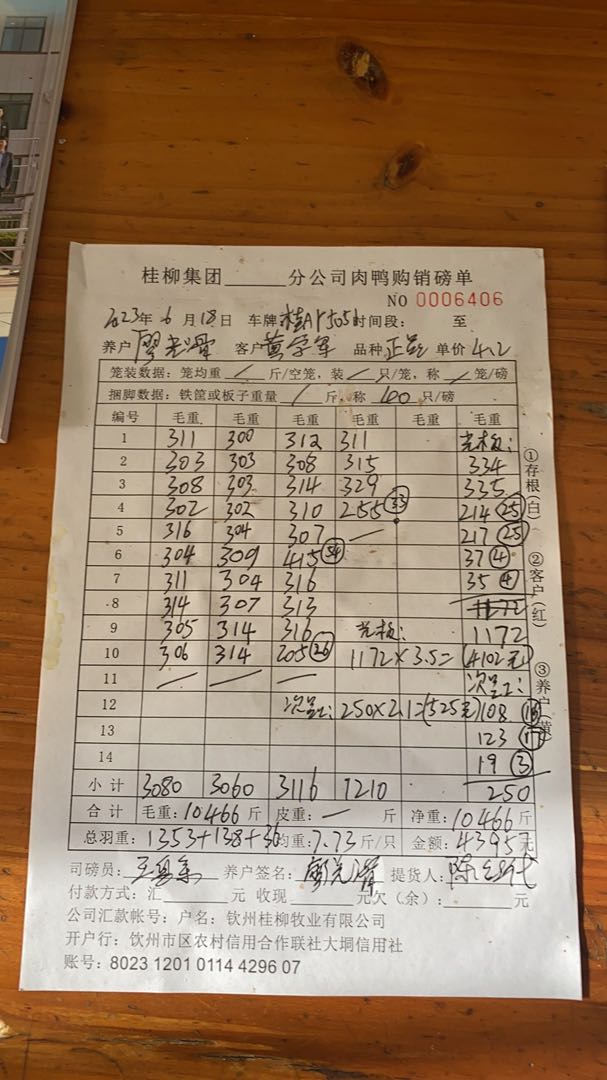 桂柳集团______分公司肉鸭购销磅单
NO 0006406
2023年 6 月 18日 车牌 桂A 时间段： 至
养户 客户 黄学军 品种 正 单价 4.2
笼装数据：笼均重 / 斤/空笼，装 / 只/笼，称 / 笼/磅
捆脚数据：铁筐或板子重量 / 斤，称 40 只/磅
编号 毛重 毛重 毛重 毛重 毛重 毛重
1 311 300 312 311 光板：
2 303 303 308 315 334
3 308 303 314 329 335
4 302 302 310 255 33 214 25
5 316 304 307 — 217 25
6 304 309 415 54 37 4
7 311 304 316 35 4
8 314 307 313 1172
9 305 314 316 光板： 1172
10 306 314 205 26 1172×3.5= 4102元
11 — — — 次
12 次 250×2.1=(525元) 108
13 123 17
14 19 3
小计 3080 3060 3116 1210 250
合计 毛重：10466 斤 皮重：— 斤 净重：10466 斤
总羽重：1353+138+36 均重：7.73 斤/只 金额：43957元
司磅员： 养户签名： 提货人：
付款方式：汇______元 收现______元欠（余）：______元
公司汇款帐号：户名：钦州桂柳牧业有限公司
开户行：钦州市区农村信用合作联社大垌信用社
账号：8023 1201 0114 4296 07
①存根（白） ②客户（红） ③养户（黄）